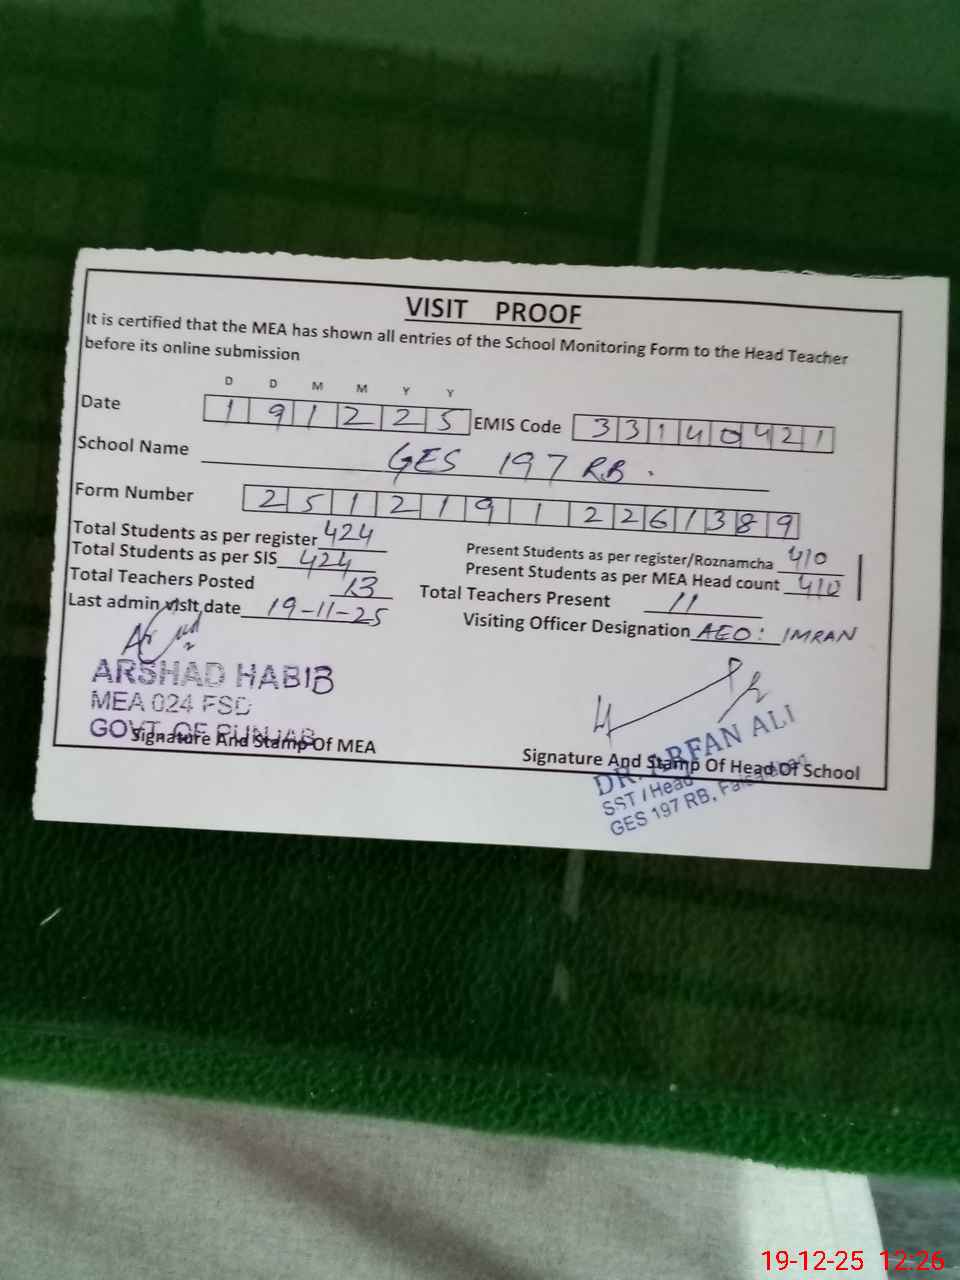 VISIT PROOF
It is certified that the MEA has shown all entries of the School Monitoring Form to the Head Teacher
before its online submission
D D M M Y Y
Date 1 9 1 2 2 5 EMIS Code 3 3 1 4 0 4 2 1
School Name GES 197 RB.
Form Number 2 5 1 2 1 9 1 2 2 6 1 3 8 9
Total Students as per register 424
Total Students as per SIS 424
Total Teachers Posted 13
Last admin visit date 19-11-25
Present Students as per register/Roznamcha 410
Present Students as per MEA Head count 410
Total Teachers Present 11
Visiting Officer Designation AEO: IMRAN
ARSHAD HABIB
MEA 024 FSD
GOVT. OF PUNJAB
Signature And Stamp Of MEA
DR. ARFAN ALI
Signature And Stamp Of Head Of School
SST / Head
GES 197 RB, Faisalabad
19-12-25 12:26